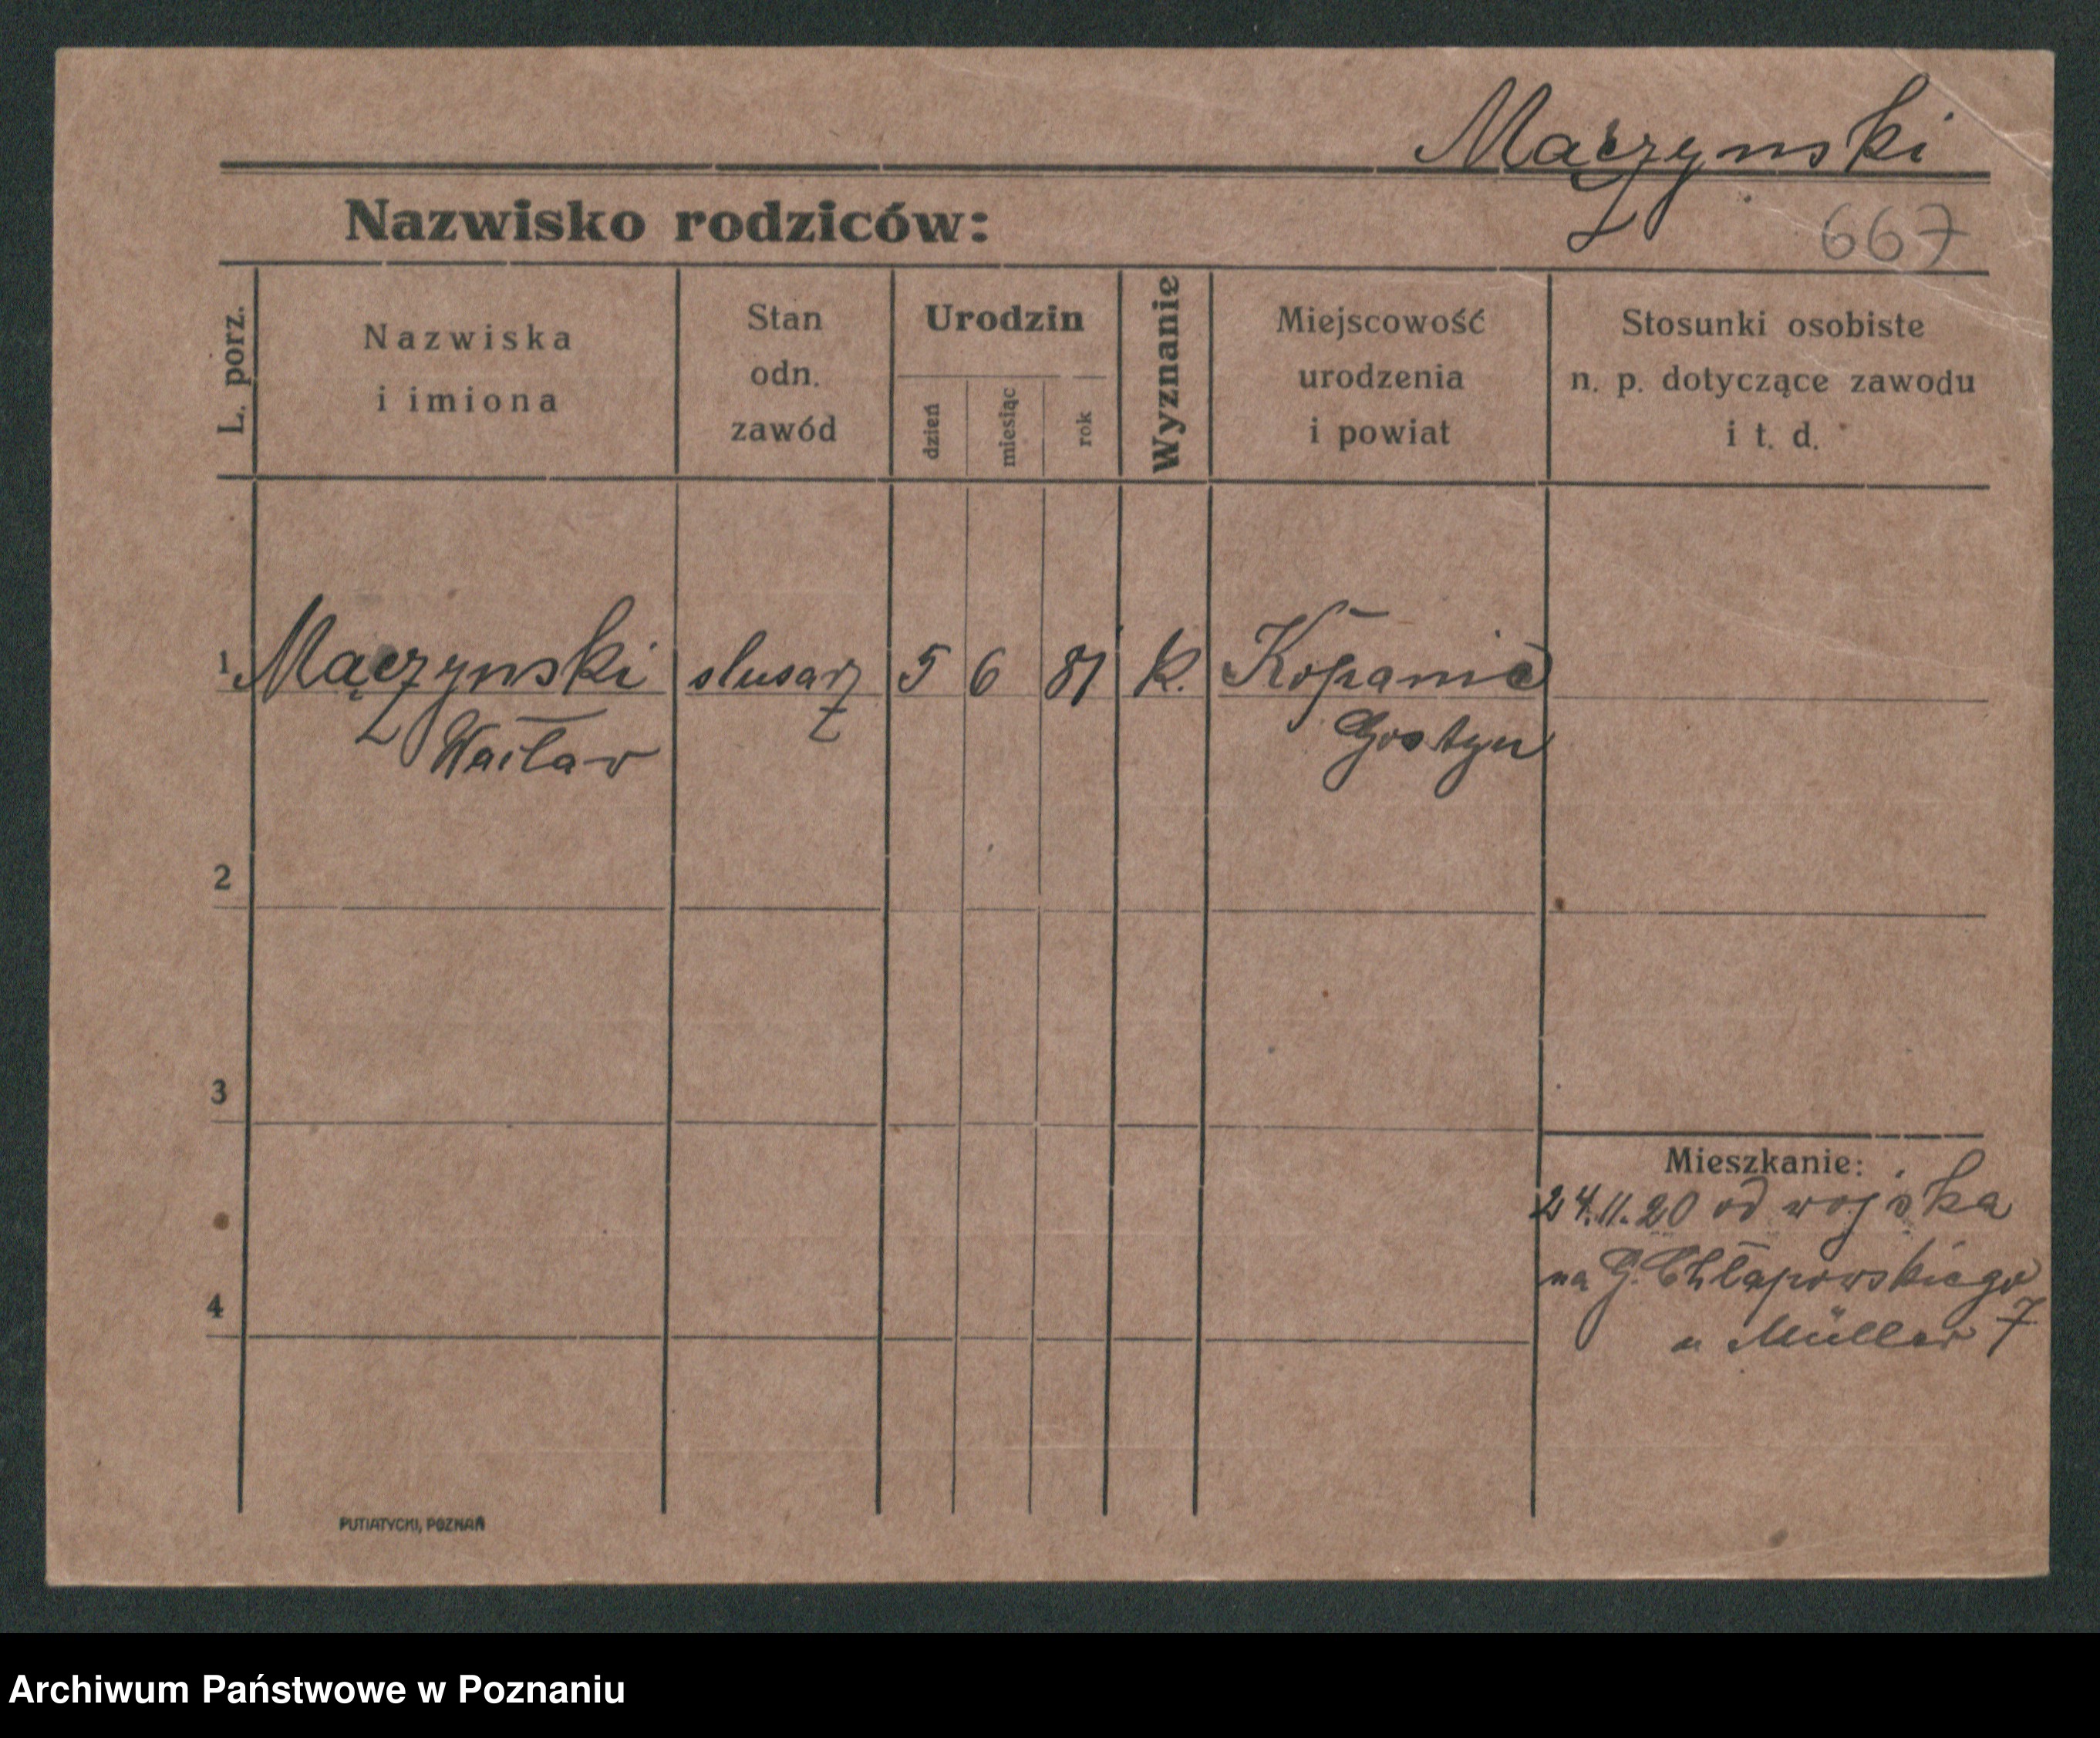 Mączynski
Nazwisko rodziców:
667
L. porz.
Nazwiska
i imiona
Stan
odn.
zawód
Urodzin
dzień
miesiąc
rok
Wyznanie
Miejscowość
urodzenia
i powiat
Stosunki osobiste
n. p. dotyczące zawodu
i t. d.
1 Mączynski slusarz 5 6 81 k. Kopanie
Wacław Gostyn
2
3
4
Mieszkanie:
24.11.20 od wojska
na G. Chłapowskiego
u Müller 7
PUTIATYCKI, POZNAŃ
Archiwum Państwowe w Poznaniu